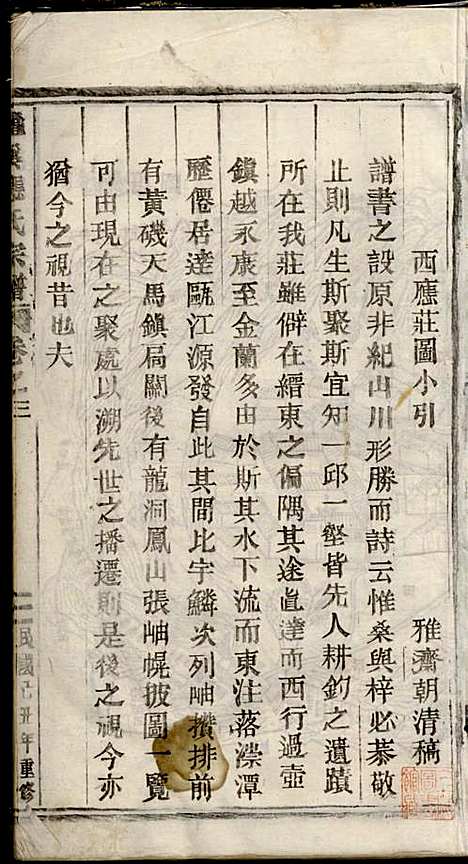 西應莊圖小引
雅齋朝清稿
譜書之設原非紀山川形勝而詩云惟桑與梓必恭敬
止則凡生斯聚斯宜知一邱一壑皆先人耕釣之遺蹟
所在我莊雖僻在縉東之偏隅其途直達而西行過壺
鎮越永康至金蘭多由於斯其水下流而東注落漈潭
歷僊居達甌江源發自此其間比宇鱗次列岫攢排前
有黃磯天馬鎮局關後有龍洞鳳山張岫幌披圖一覽
可由現在之聚處以溯先世之播遷則是後之視今亦
猶今之視昔也夫
溪應氏宗譜
卷之三
民國己丑年重修